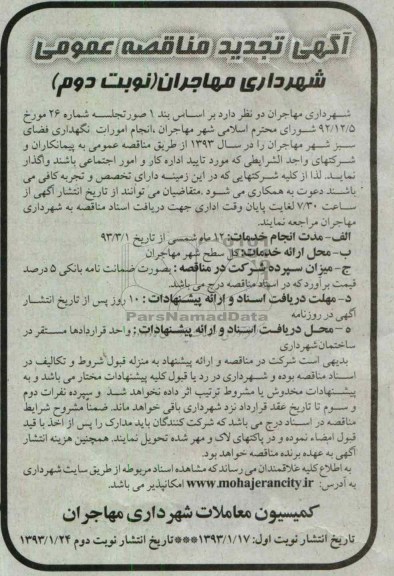 آگهی تجدید مناقصه عمومی
شهرداری مهاجران(نوبت دوم)
شهرداری مهاجران در نظر دارد بر اساس بند ۱ صورتجلسه شماره ۲۶ مورخ
۹۲/۱۲/۵ شورای محترم اسلامی شهر مهاجران ،انجام امورات نگهداری فضای
سبز شهر مهاجران را در سال ۱۳۹۳ از طریق مناقصه عمومی به پیمانکاران و
شرکتهای واجد الشرایطی که مورد تایید اداره کار و امور اجتماعی باشند واگذار
نمایند. لذا از کلیه شرکتهایی که در این زمینه دارای تخصص و تجربه کافی می
باشند دعوت به همکاری می شود .متقاضیان می توانند از تاریخ انتشار آگهی از
ساعت ۷/۳۰ لغایت پایان وقت اداری جهت دریافت اسناد مناقصه به شهرداری
مهاجران مراجعه نمایند.
الف- مدت انجام خدمات: ۱۲ ماه شمسی از تاریخ ۹۳/۳/۱
ب- محل ارائه خدمات: کل سطح شهر مهاجران
ج- میزان سپرده شرکت در مناقصه : بصورت ضمانت نامه بانکی ۵ درصد
قیمت برآورد که در اسناد مناقصه درج می باشد.
د- مهلت دریافت اسناد و ارائه پیشنهادات : ۱۰ روز پس از تاریخ انتشار
آگهی در روزنامه
ParsNamadData
ه - محل دریافت اسناد و ارائه پیشنهادات : واحد قراردادها مستقر در
ساختمان شهرداری
بدیهی است شرکت در مناقصه و ارائه پیشنهاد به منزله قبول شروط و تکالیف در
اسناد مناقصه بوده و شهرداری در رد یا قبول کلیه پیشنهادات مختار می باشد و به
پیشنهادات مخدوش یا مشروط ترتیب اثر داده نخواهد شد و سپرده نفرات دوم
و سوم تا تاریخ عقد قرارداد نزد شهرداری باقی خواهد ماند. ضمنا مشروح شرایط
مناقصه در اسناد درج می باشد که شرکت کنندگان باید مدارک را پس از اخذ با قید
قبول امضاء نموده و در پاکتهای لاک و مهر شده تحویل نمایند. همچنین هزینه انتشار
آگهی به عهده برنده مناقصه خواهد بود.
به اطلاع کلیه علاقمندان می رساند که مشاهده اسناد مربوطه از طریق سایت شهرداری
به آدرس: www.mohajerancity.ir امکانپذیر می باشد.
کمیسیون معاملات شهرداری مهاجران
تاریخ انتشار نوبت اول: ۱۳۹۳/۱/۱۷***تاریخ انتشار نوبت دوم ۱۳۹۳/۱/۲۴